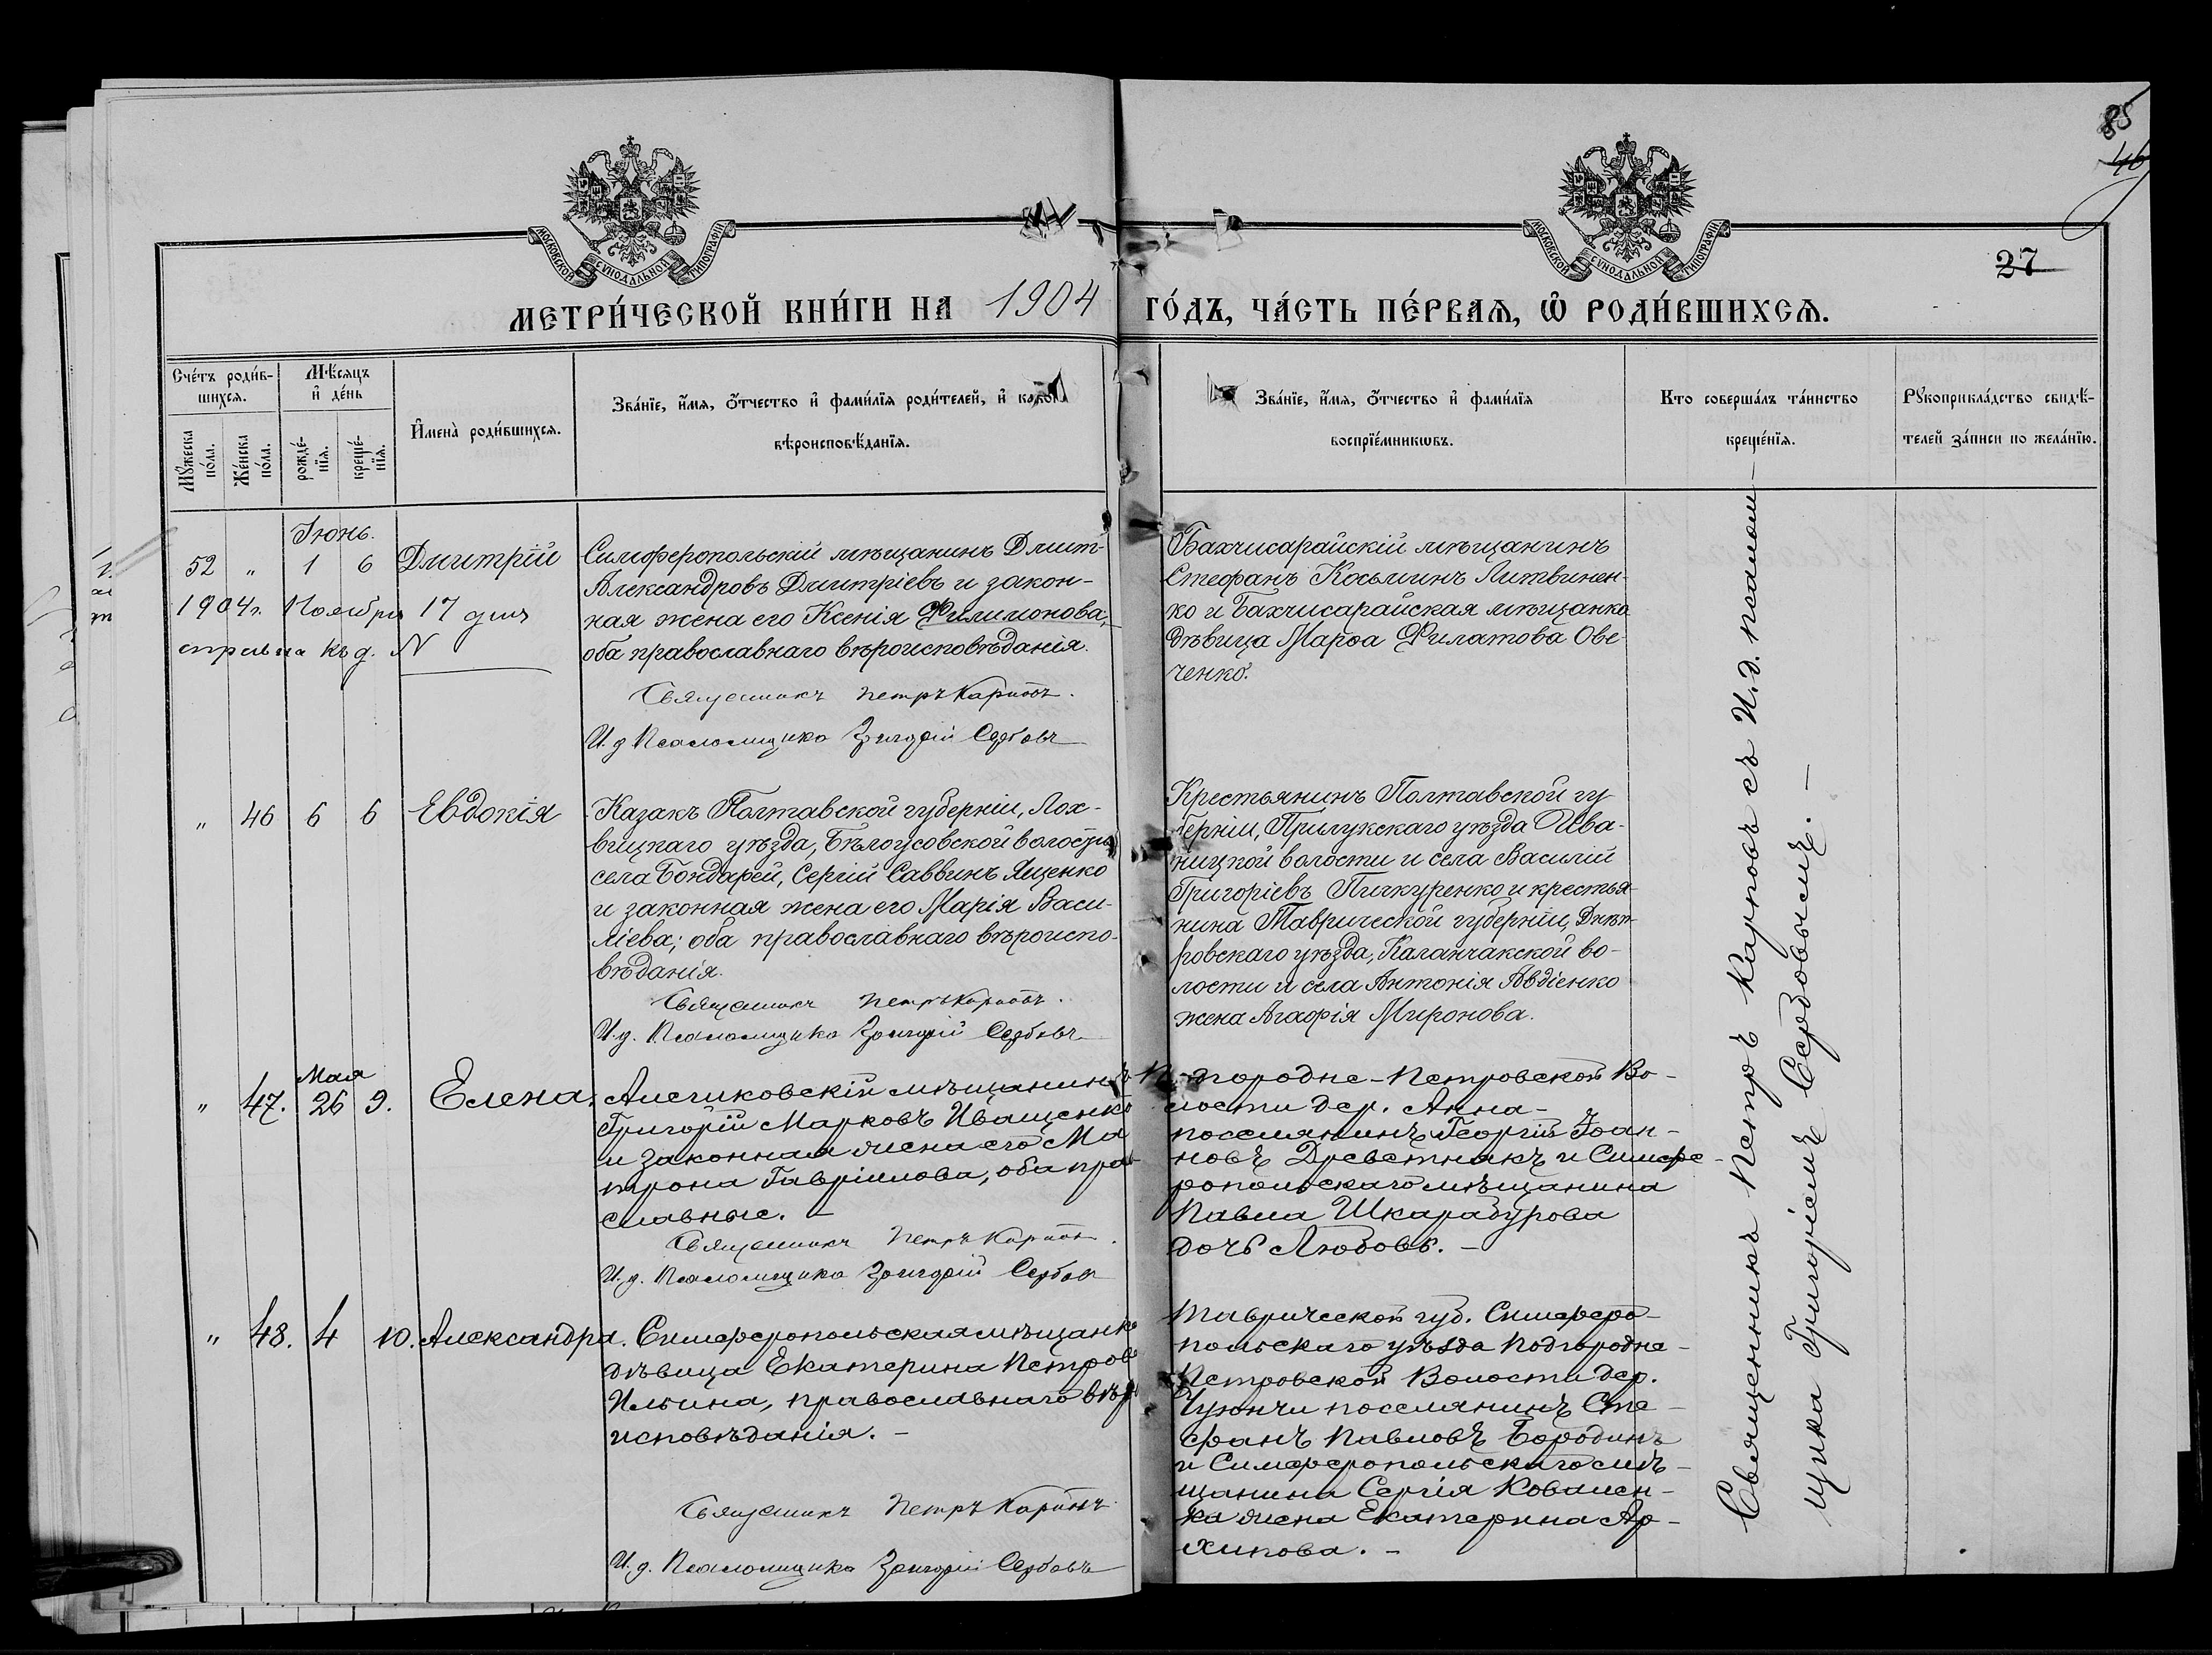 85
46
27
МОСКОВСКОЙ СѴНОДАЛЬНОЙ ТИПОГРАФІИ
МОСКОВСКОЙ СѴНОДАЛЬНОЙ ТИПОГРАФІИ
МЕТРИ́ЧЕСКОЙ КНИ́ГИ НА 1904 ГО́ДЪ, ЧА́СТЬ ПЕ́РВАѦ, Ѡ҆ РОДИ́ВШИХСѦ.
Сче́тъ роди́в-
шихсѧ.
Мꙋ́жеска
по́ла.
Же́нска
по́ла.
Мѣ́сѧцъ
и҆ де́нь
рожде́-
нїѧ.
креще́-
нїѧ.
И҆мена̀ роди́вшихсѧ.
Зва́нїе, и҆́мѧ, ѻ҆́тчество и҆ фами́лїѧ роди́телей, и҆ како́гѡ
вѣроисповѣ́данїѧ.
Зва́нїе, и҆́мѧ, ѻ҆́тчество и҆ фами́лїѧ
воспрїе́мникѡвъ.
Кто соверша́лъ та́инство
креще́нїѧ.
Рꙋкоприкла́дство свидѣ́-
телей за́писи по жела́нїю.
Іюнь.
52 " 1 6 Дмитрій
1904 г. Ноября 17 дня
N
Симферопольскій мѣщанинъ Дмит-
Александровъ Дмитріевъ и закон-
ная жена его Ксенія Филимонова;
оба православнаго вѣроисповѣданія.
Священникъ Петръ Карповъ.
И. д. Псаломщика Григорій Сербовъ
Бахчисарайскій мѣщанинъ
Стефанъ Косьминъ Литвинен-
ко и Бахчисарайская мѣщанка
дѣвица Марѳа Филатова Ове-
ченко.
" 46 6 6 Евдокія
Казакъ Полтавской губерніи, Лох-
вицкаго уѣзда, Бѣлоусовской волости
села Бондарей, Сергій Саввинъ Яценко
и законная жена его Марія Васи-
ліева; оба православнаго вѣроиспо-
вѣданія.
Священникъ Петръ Карповъ.
И. д. Псаломщика Григорій Сербовъ
Крестьянинъ Полтавской гу-
берніи, Прилукскаго уѣзда Ива-
ницкой волости и села Василій
Григоріевъ Пичкуренко и крестья-
нина Таврической губерніи, Днѣп-
ровскаго уѣзда, Каланчакской во-
лости и села Антонія Авдіенко
жена Агаѳія Миронова.
Мая
" 47. 26 9. Елена.
Алешковскій мѣщанинъ
Григорій Марковъ Иващенко
и законная жена его Ма
трона Гавріилова, оба пра
славные. –
Священникъ Петръ Карповъ.
И. д. Псаломщика Григорій Сербовъ
городне-Петровской Во-
лости дер. Анна-
поселянинъ Георгій Іоан-
новъ Древетнякъ и Симфе-
ропольскаго мѣщанина
Павла Шкарабурова
дочь Любовь. –
" 48. 4 10. Александра.
Симферопольская мѣщанка
дѣвица Екатерина Петрова
Ильина, православнаго вѣр
исповѣданія. –
Священникъ Петръ Карповъ
И. д. Псаломщика Григорій Сербовъ
Таврической губ. Симферо-
польскаго уѣзда Подгородне-
Петровской Волости дер.
Чуюнчи поселянинъ Сте-
фанъ Павловъ Бородинъ
и Симферопольскаго мѣ-
щанина Сергія Ковален-
ка жена Екатерина Ар-
хипова. –
Священникъ Петръ Карповъ съ И. д. псалом-
щика Григоріемъ Сербовымъ. –